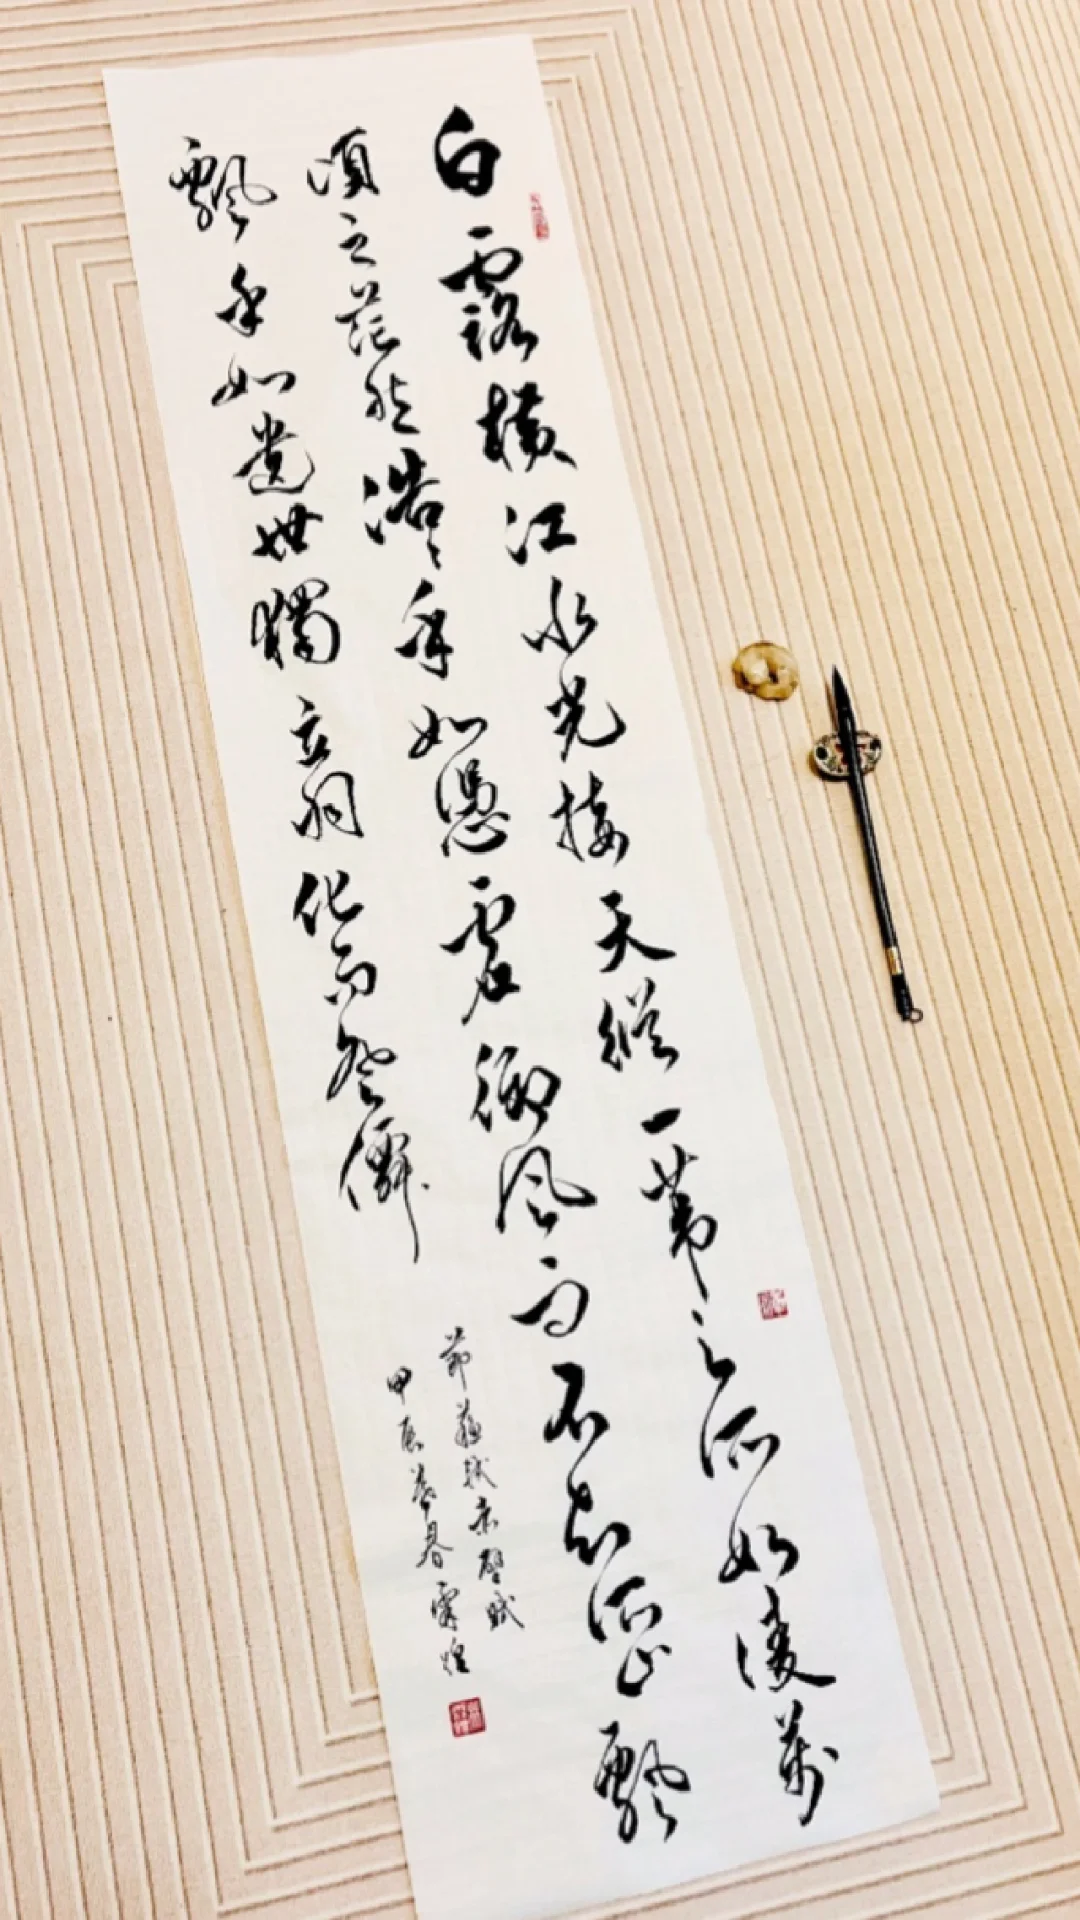 白露横江水光接天縱一葦之所如凌萬
頃之茫然浩〻乎如憑虚御風而不知所止飄
飄乎如遺世獨立羽化而登僊
節蘇軾赤壁賦
甲辰暮春霽煌